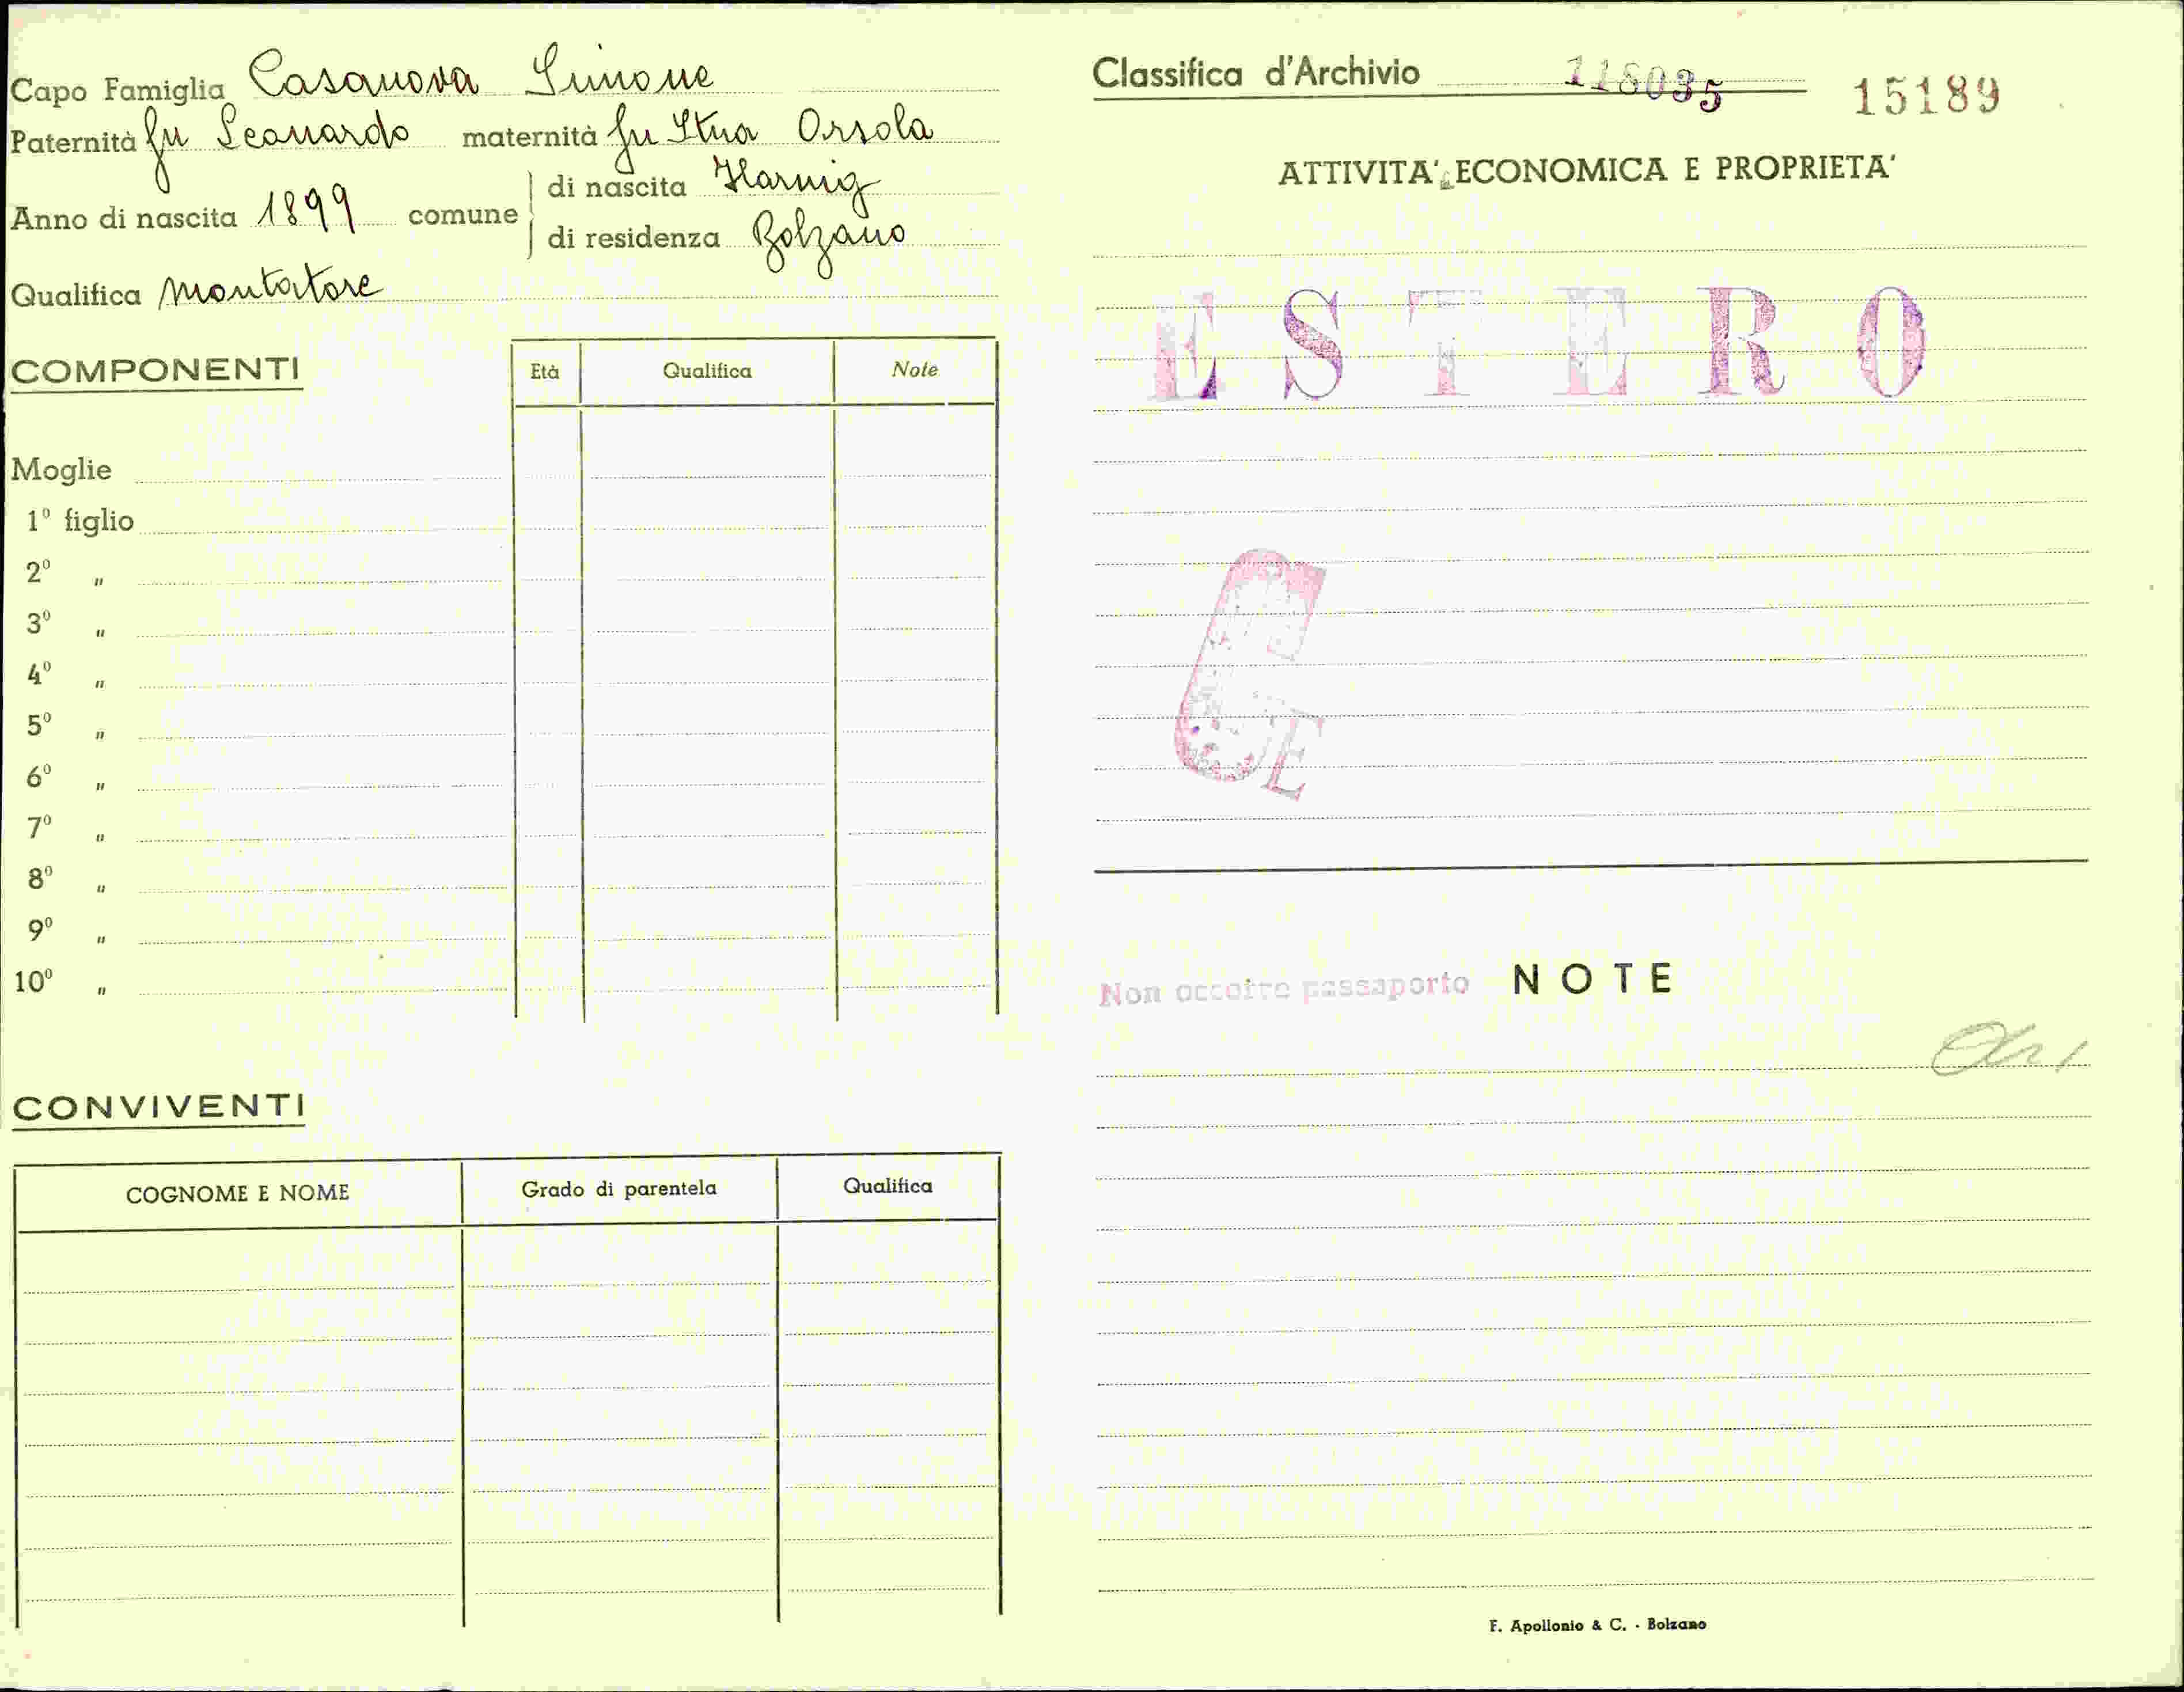 Capo Famiglia Casanova Simone
Paternità fu Leonardo maternità fu Stua Orsola
Anno di nascita 1899 comune
di nascita Harnig
di residenza Bolzano
Qualifica montatore
COMPONENTI
Età Qualifica Note
Moglie
1º figlio
2º "
3º "
4º "
5º "
6º "
7º "
8º "
9º "
10º "
CONVIVENTI
COGNOME E NOME Grado di parentela Qualifica
Classifica d'Archivio 118035 15189
ATTIVITA' ECONOMICA E PROPRIETA'
ESTERO
Non occorre passaporto
NOTE
F. Apollonio & C. - Bolzano